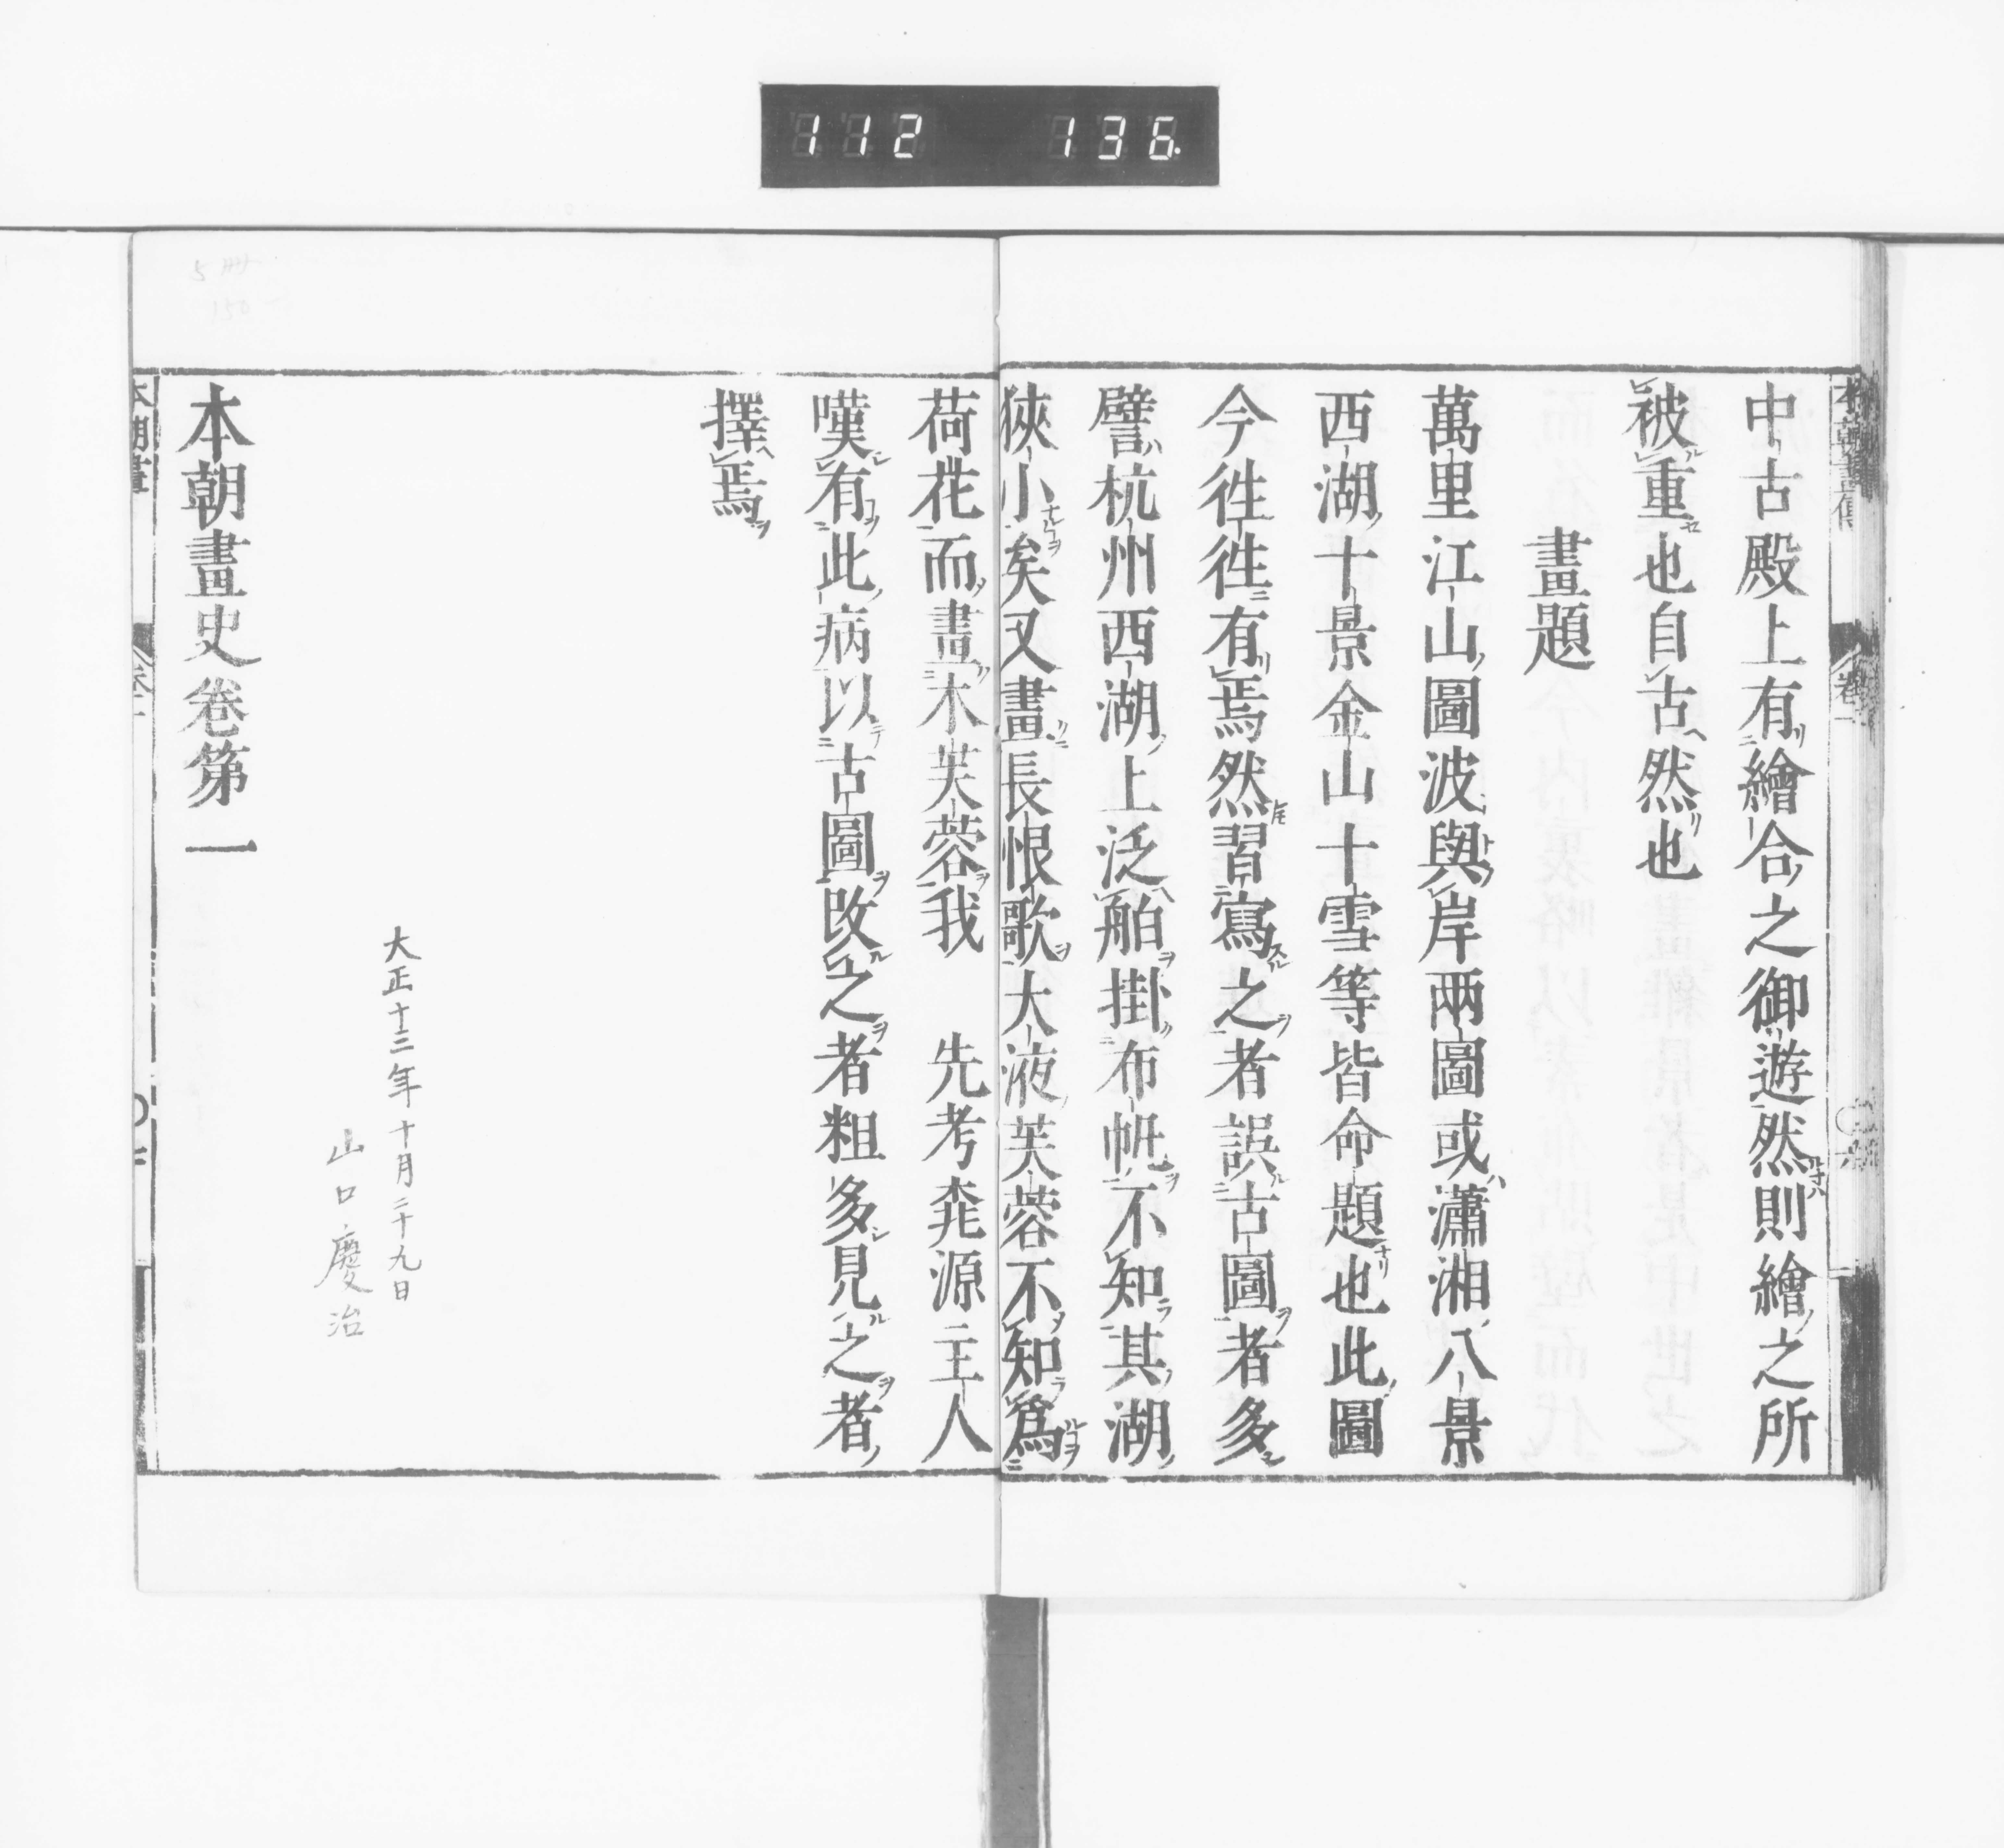 112 136.
中古殿上有繪合之御遊然則繪之所
被重也自古然也
畫題
萬里江山圖波與岸兩圖或瀟湘八景
西湖十景金山十雪等皆命題也此圖
今徃徃有焉然習寫之者誤古圖者多
譬杭州西湖上泛舶掛布帆不知其湖
狹小矣又畫長恨歌大液芙蓉不知爲
荷花而畫木芙蓉我 先考桃源主人
嘆有此病以古圖改之者粗多見之者
擇焉
大正十三年十月二十九日
山口慶治
本朝畫史卷第一